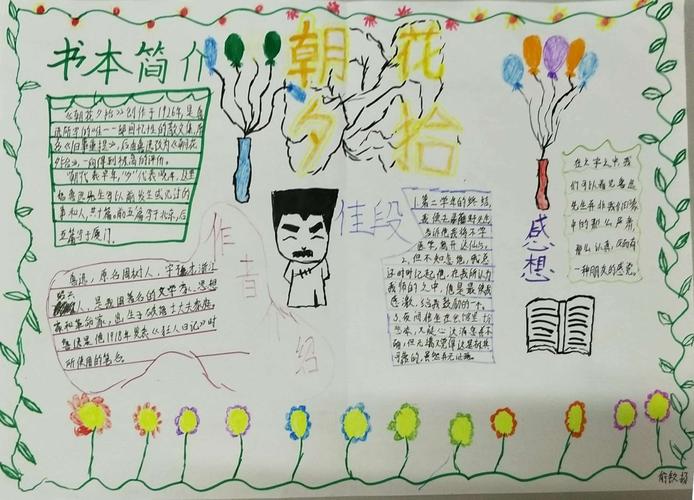 书本简介
朝花夕拾
《朝花夕拾》创作于1926年，是鲁
迅所写的唯一一部回忆性的散文集，原
名《旧事重提》，后由鲁迅改为《朝花
夕拾》，一向得到极高的评价。
“朝”代表早年，“夕”代表晚年，这里
指鲁迅先生
事和人，共十篇。前五篇写于北京，后
五篇写于厦门。
作者
绍
鲁迅，原名周树人，字豫才，浙江
绍兴
人，是我国著名的文学家、思想
家和革命家，出生于破落士大夫家庭，
鲁迅是他1918年发表《狂人日记》时
所使用的笔名。
佳段
1.第二学年的终结，
我便去寻藤野先生，
告诉他我将不学
医学，离开这仙台。
2.但不知怎地，我总
还时时记起他，在我所认为
我师的之中，他是最使我
感激，给我鼓励的一个。
感想
在文字之中，我
们可以看见鲁迅
先生并非我们印象
中的那么严肃，
那么认真，反而有
一种朋友的感觉。